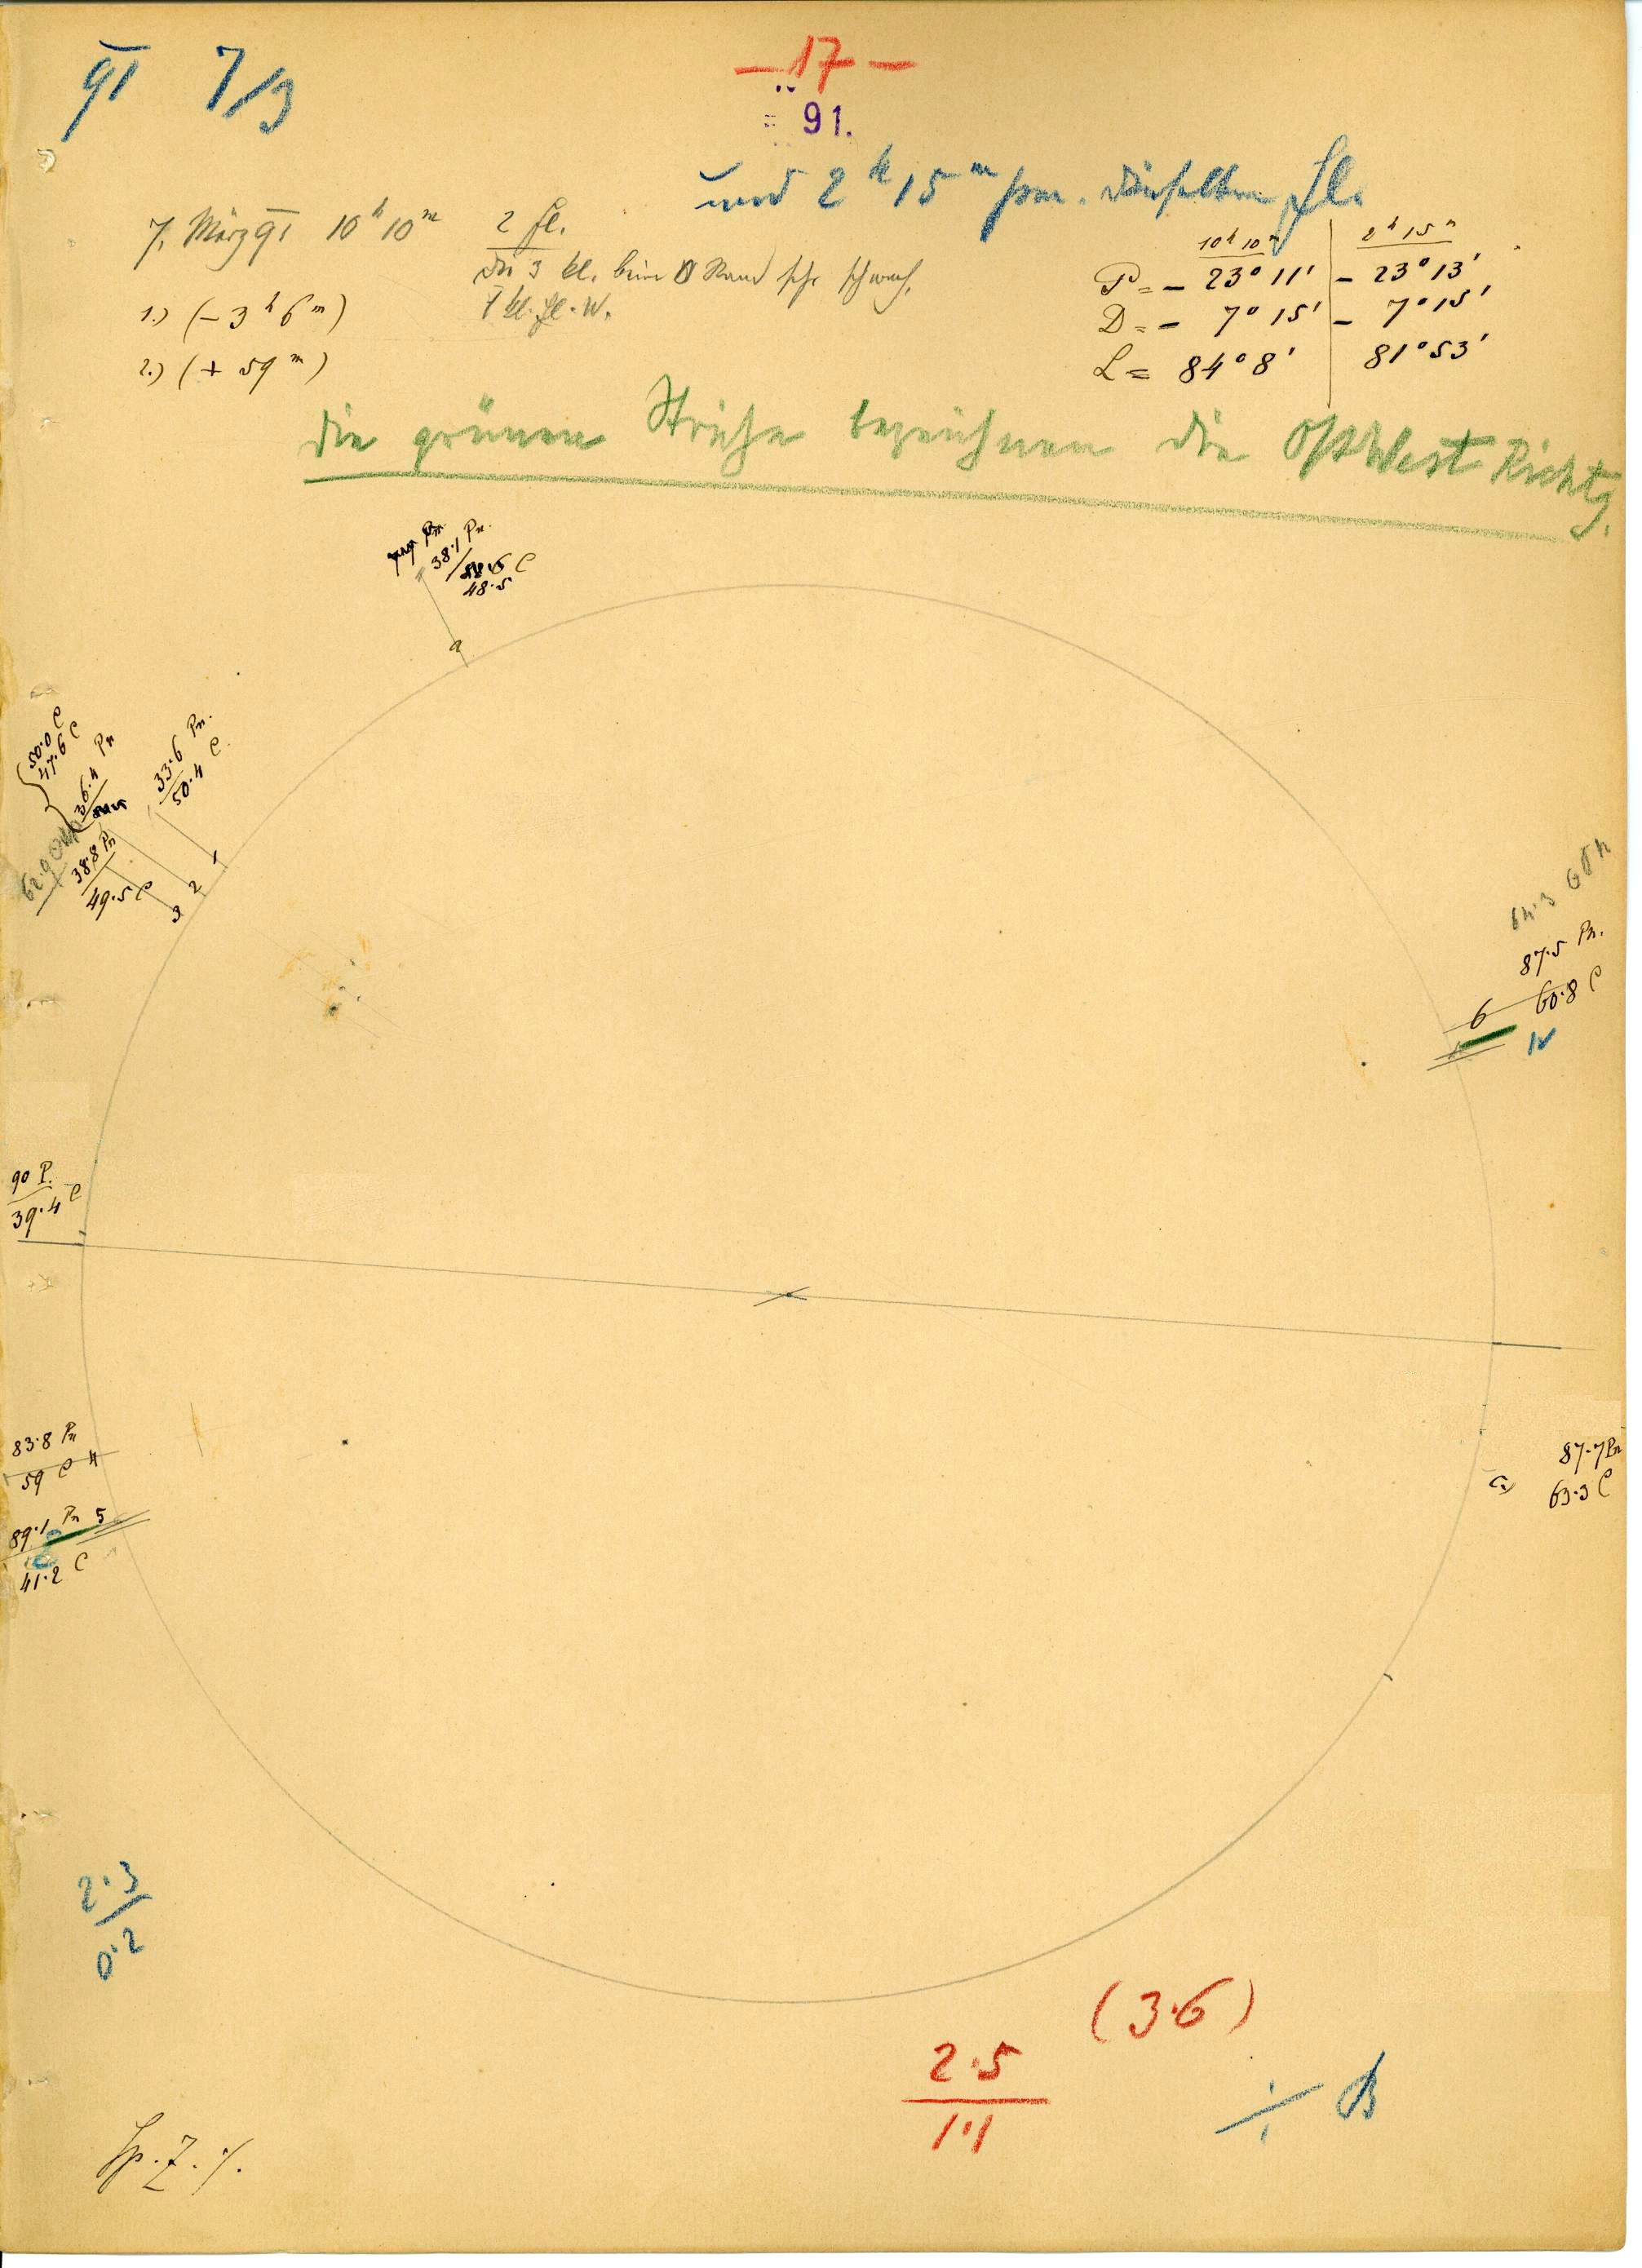 91 7/3
— 17 —
91.
und 2 h 15 m pm. dieselben Fl.
7. März 91 10 h 10 m
2 Fl.
die 3 kl. beim O Rand sehr schwach.
kl. Fl. W.
1.) (– 3 h 6 m)
2.) (+ 59 m)
10 h 10 m 2 h 15 m
P = – 23° 11' – 23° 13'
D = – 7° 15' – 7° 15'
L = 84° 8' 81° 53'
die grünen Striche bezeichnen die Ost West Richtg.
38.1 Pn.
48.5 C
a
50.0 C
47.6 C
36.4 Pn
33.6 Pn.
50.4 C
62.9
38.8 Pn
49.5 C
1
2
3
64.3
87.5 Pn.
60.8 C
6
W
90 P.
39.4 C
83.8 Pn
59 C 4
89.1 Pn 5
41.2 C
87.7 Pn
63.3 C
2.3
0.2
(3.6)
2.5
1.1
B
Sp. Z. 1.